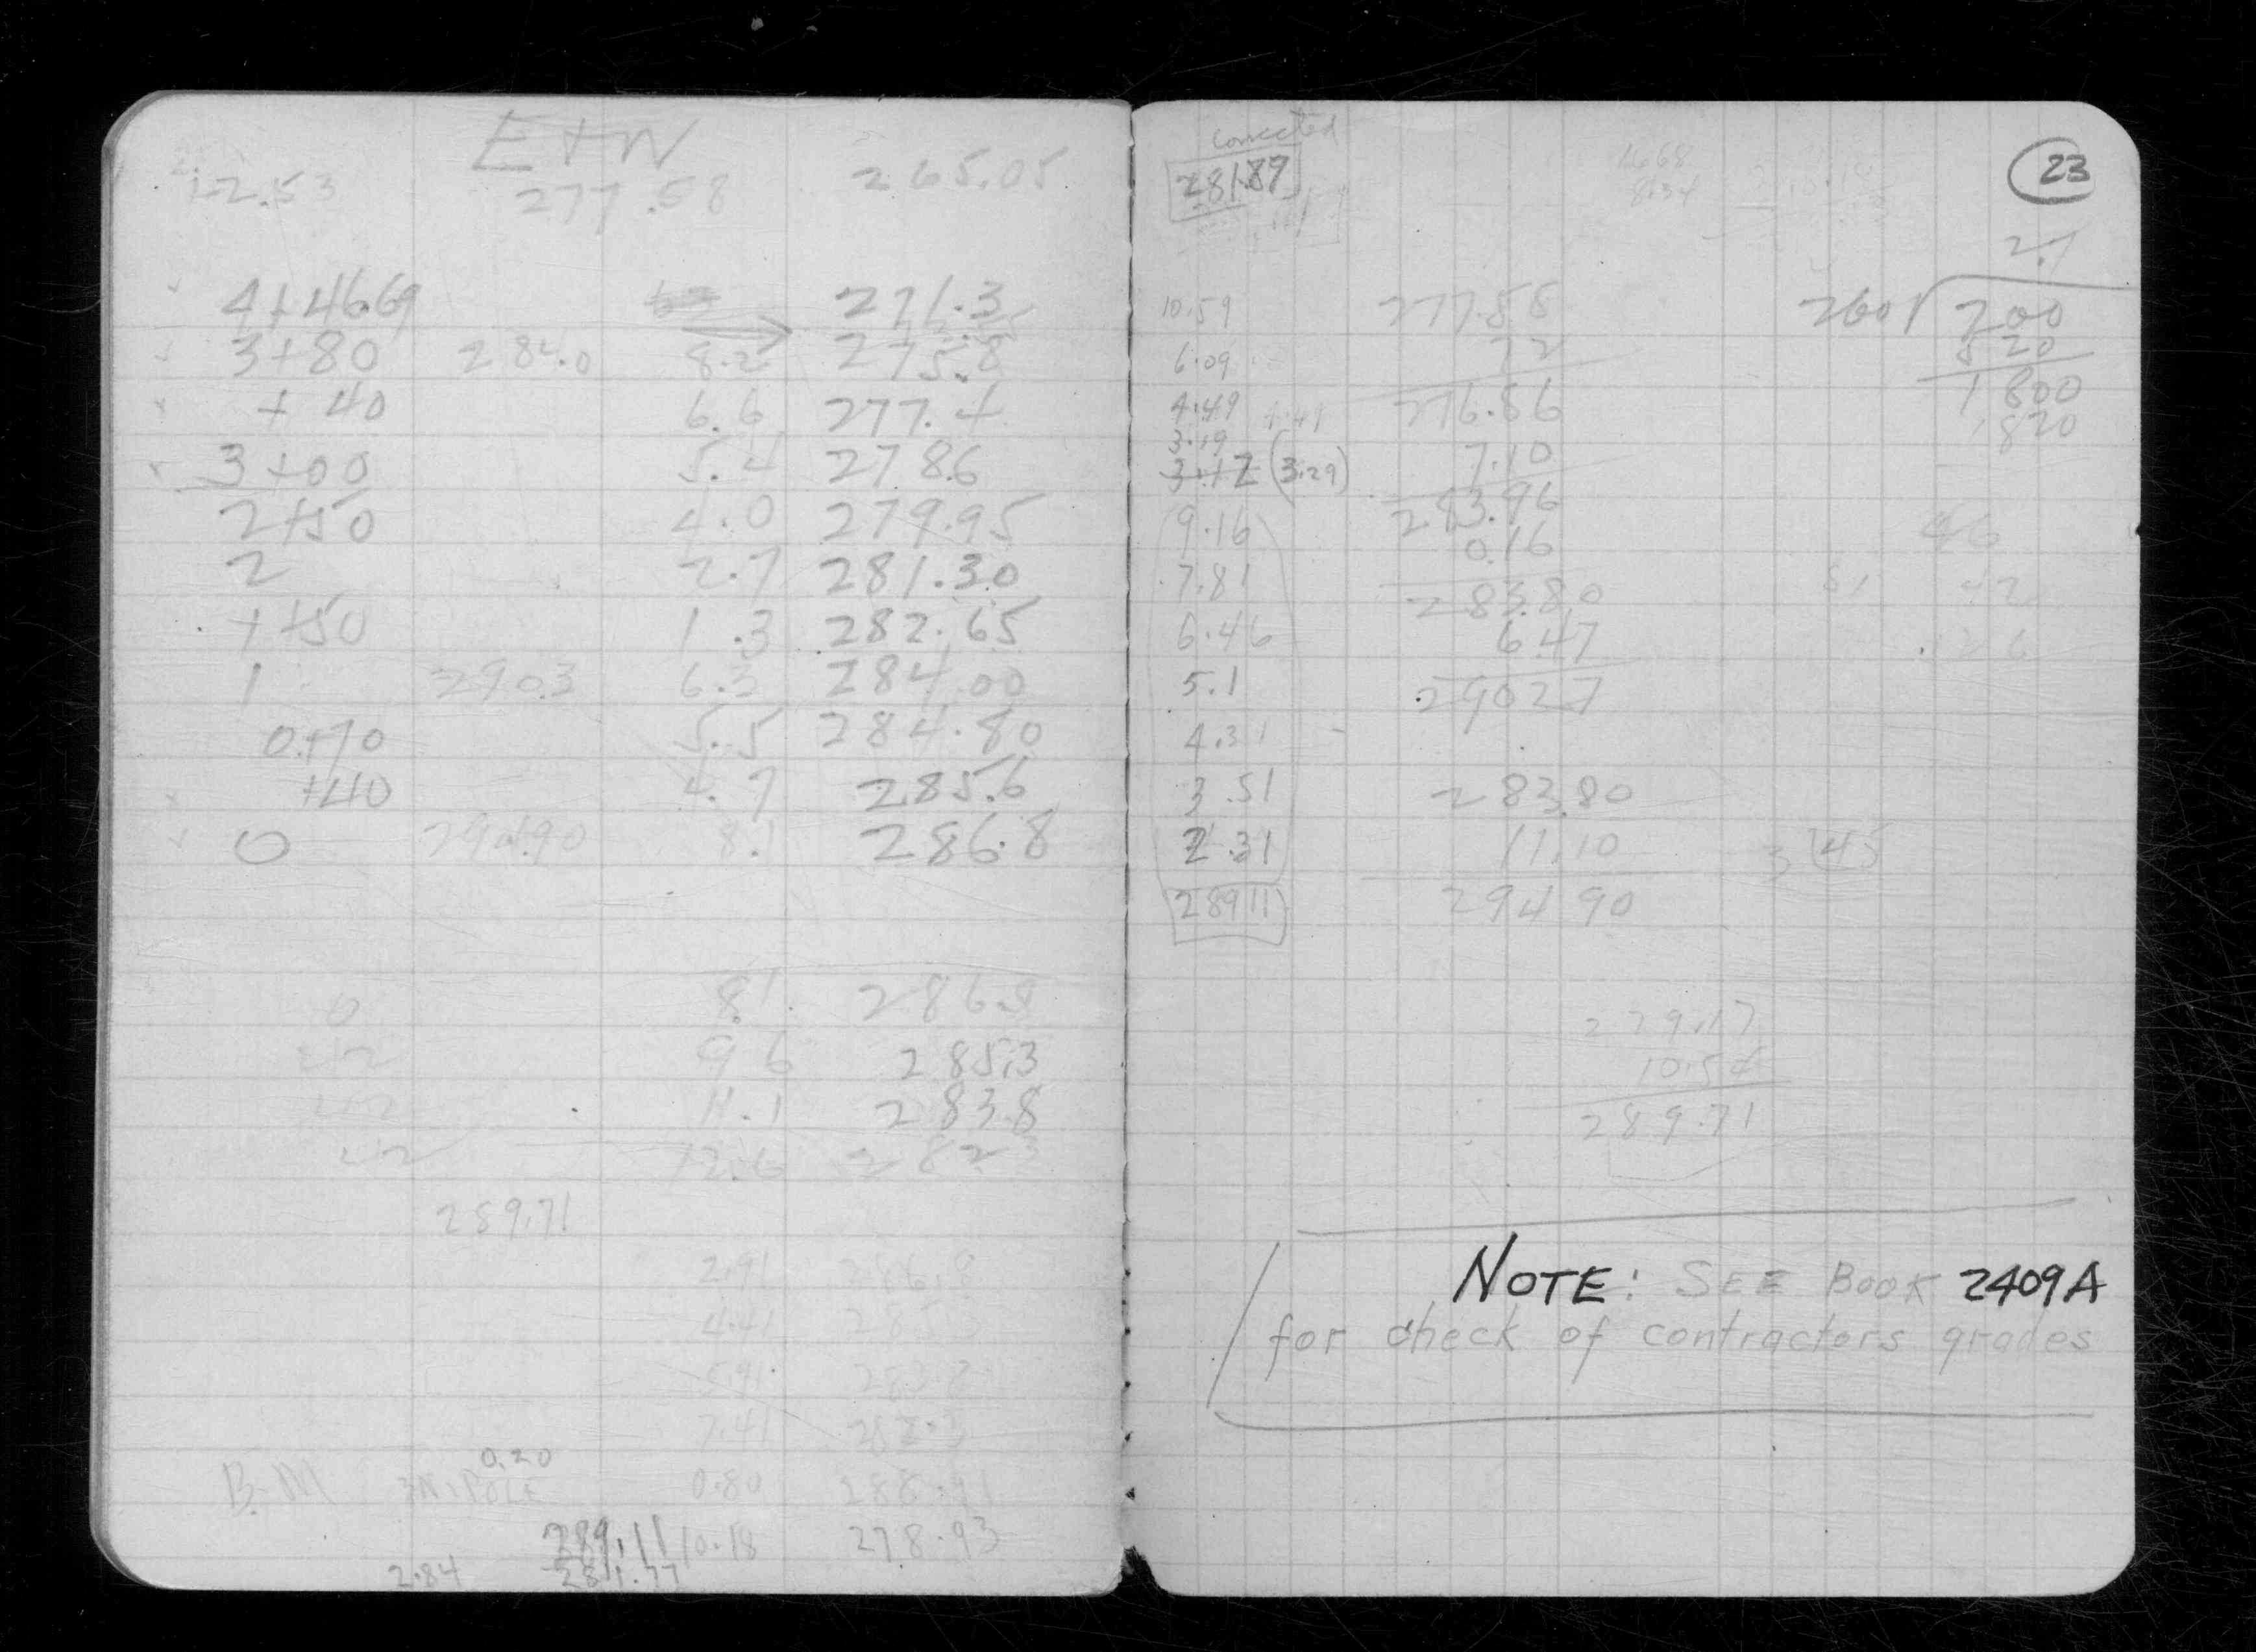 E+W
12.53 277.58 265.05
4+46.69 271.3
3+80 284.0 8.2 275.8
+40 6.6 277.4
3+00 5.4 278.6
2+50 4.0 279.95
2 2.7 281.30
1+50 1.3 282.65
1 290.3 6.3 284.00
0+70 5.5 284.80
+40 4.7 285.6
0 294.90 8.1 286.8
0 8.1 286.8
9.6 285.3
11.1 283.8
12.6 282.3
289.71
2.91 286.8
4.41 285.3
5.91 283.8
7.41 282.3
0.20
B.M 0.80 288.91
289.11 10.18 278.93
2.84 281.77
corrected
281.87
23
2.7
10.59 277.58 260 700
6.09 72 520
4.49 276.86 1800
3.19 1820
3.12 (3.29) 7.10
9.16 283.96 46
0.16
7.81 283.80 42
6.46 6.47 126
5.1 290.27
4.31
3.51 283.80
2.31 11.10 3 45
289.11 294.90
279.17
10.54
289.71
NOTE: SEE BOOK 2409A
for check of contractors grades